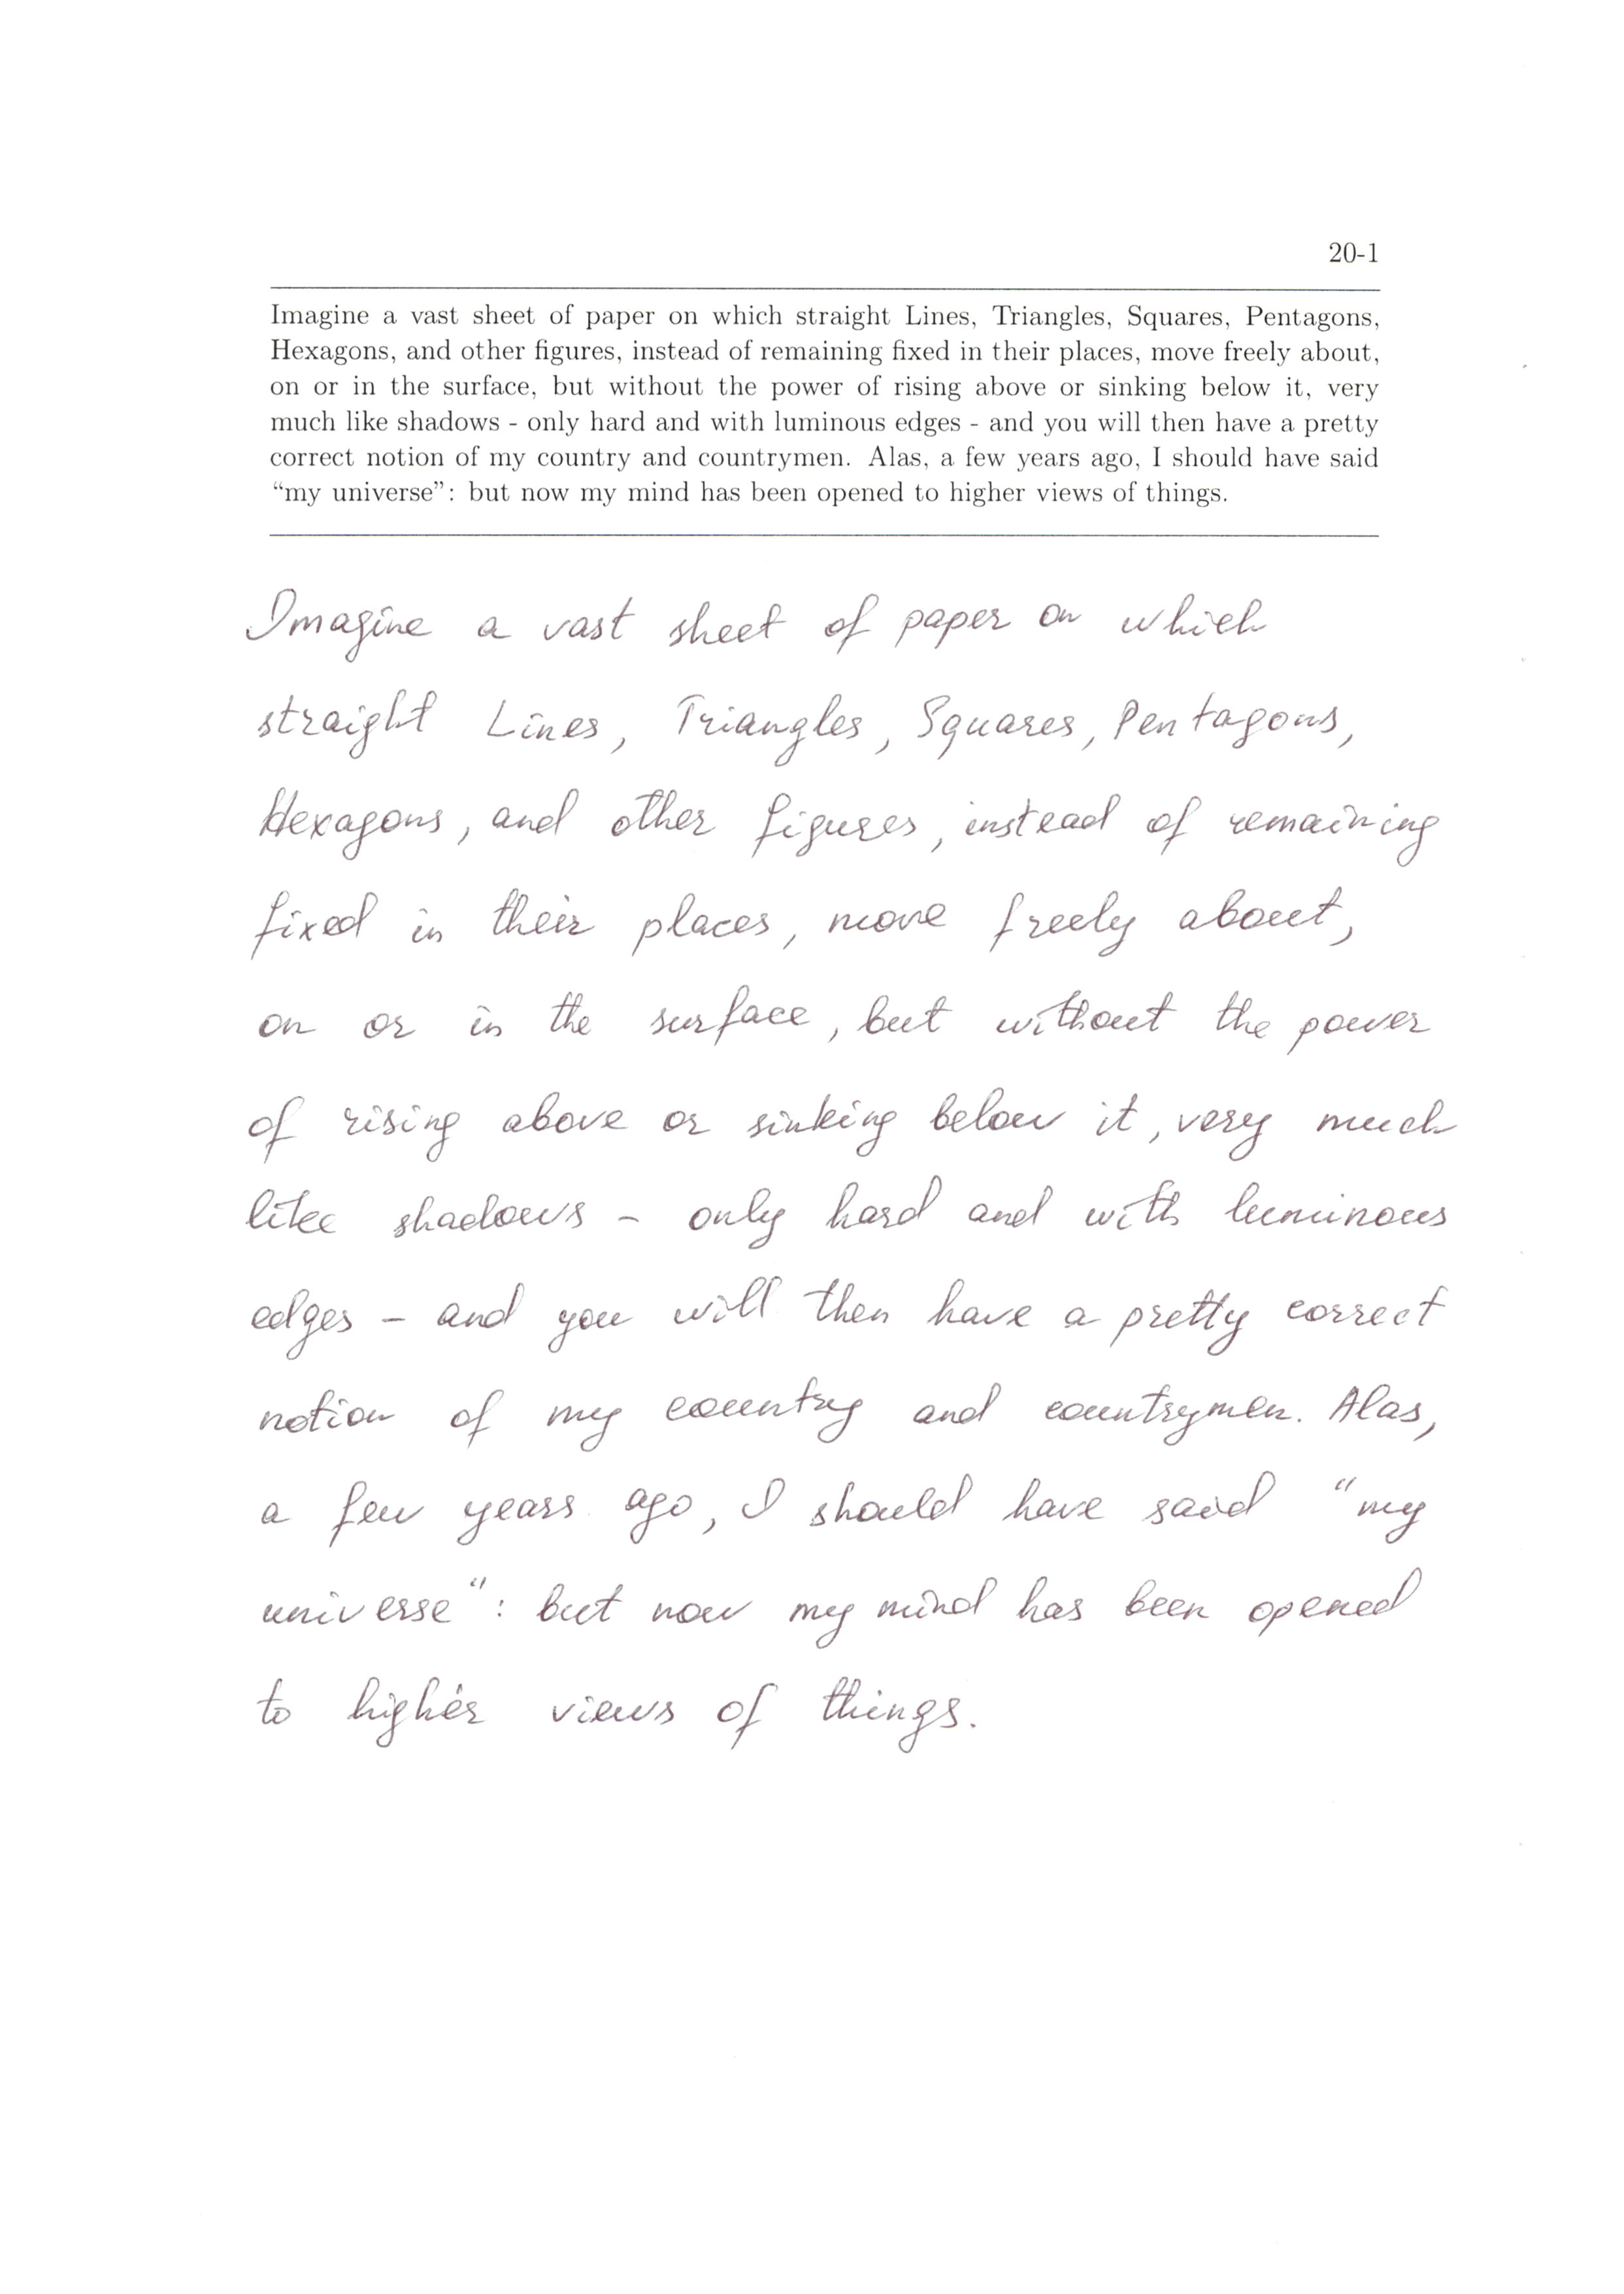 20-1
Imagine a vast sheet of paper on which straight Lines, Triangles, Squares, Pentagons,
Hexagons, and other figures, instead of remaining fixed in their places, move freely about,
on or in the surface, but without the power of rising above or sinking below it, very
much like shadows - only hard and with luminous edges - and you will then have a pretty
correct notion of my country and countrymen. Alas, a few years ago, I should have said
“my universe”: but now my mind has been opened to higher views of things.
Imagine a vast sheet of paper on which
straight Lines, Triangles, Squares, Pentagons,
Hexagons, and other figures, instead of remaining
fixed in their places, move freely about,
on or in the surface, but without the power
of rising above or sinking below it, very much
like shadows - only hard and with luminous
edges - and you will then have a pretty correct
notion of my country and countrymen. Alas,
a few years ago, I should have said "my
universe": but now my mind has been opened
to higher views of things.